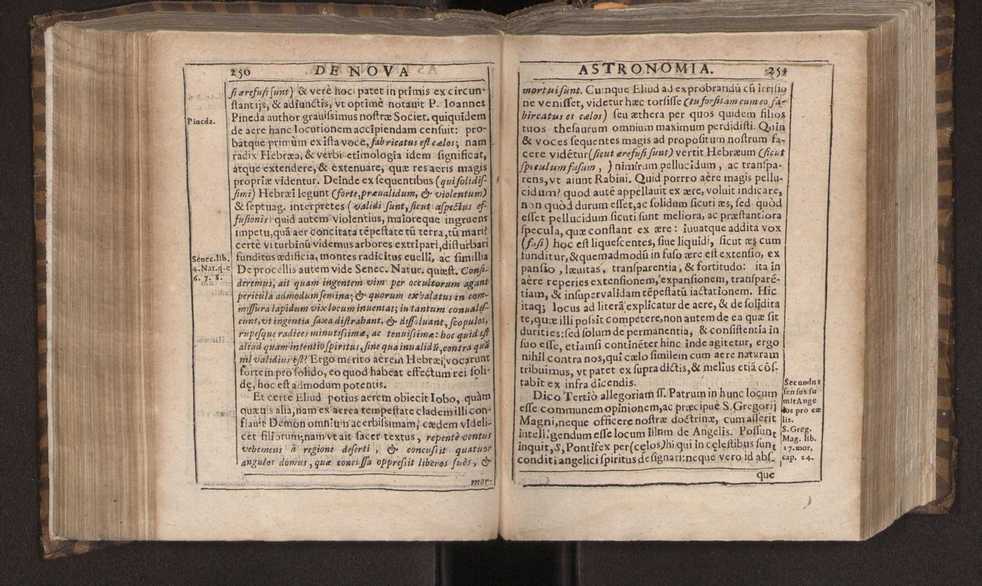 250 DE NOVA
si ære fusi sunt) & verè hoc patet in primis ex circun-
stantijs, & adiunctis, vt optimè notauit P. Ioannes
Pineda author grauissimus nostræ Societ. quiquidem
de aere hanc locutionem accipiendam censuit: pro-
batque primùm ex ista voce, fabricatus est cælos; nam
radix Hebræa, & verbi etimologia idem significat,
atque extendere, & extenuare, quæ res aeris magis
propriæ videntur. Deinde ex sequentibus (qui solidis-
simi) Hebræi legunt (forte, præualidum, & violentum)
& septuag. interpretes (validi sunt, sicut aspectus ef-
fusionis: quid autem violentius, maioreque ingruens
impetu, quā aer concitata tēpestate tū terra, tū mari?
certè vi turbinū videmus arbores extirpari, disturbari
funditus ædificia, montes radicitus euelli, ac similia
De procellis autem vide Senec. Natur. quæst. Consi-
deremus, ait quam ingentem vim per occultorum agant
paruula admodum semina; & quorum exilitas in com-
missura lapidum vix locum inuenit; in tantum conuales-
cunt, vt ingentia saxa distrahant, & dissoluant, scopulos,
rupesque radices minutissimæ, ac tenuissimæ: hoc quid est
aliud quam intentio spiritus, sine qua inualidū, contra quā
nil validius est? Ergo merito aerem Hebræi, vocarunt
fortem pro solido, eo quod habeat effectum rei soli-
dę, hoc est admodum potentis.
Et certe Eliud potius aerem obiecit Iobo, quàm
quæuis alia, nam ex aerea tempestate cladem illi con-
flauit Dèmon omniū acerbissimam; cædem videli-
cet filiorum; nam vt ait sacer textus, repentè ventus
vehemens à regione deserti, & concussit quatuor
angulos domus, quæ concussa oppressit liberos tuos, &
mor-
Pineda.
Senec. lib.
2. Nat. q. c
6. 7. 8.
ASTRONOMIA. 251
mortui sunt. Cumque Eliud ad exprobrandū cū irrisio
ne venisset, videtur hæc torsisse (tu forsitam cum eo fa-
bricatus es cælos) seu æthera per quos quidem filios
tuos thesaurum omnium maximum perdidisti. Quin
& voces sequentes magis ad propositum nostrum fa-
cere vidētur (sicut ære fusi sunt) vertit Hebræum (sicut
speculum fusum,) nimirum pellucidum, ac transpa-
rens, vt aiunt Rabini. Quid porrro aère magis pellu-
cidum? quod autē appellauit ex ære, voluit indicare,
non quòd durum esset, ac solidum sicuti æs, sed quòd
esset pellucidum sicuti sunt meliora, ac præstantiora
specula, quæ constant ex ære: iuuatque addita vox
(fusi) hoc est liquescentes, siue liquidi, sicut æs cum
funditur, & quemadmodū in fuso ære est extensio, ex
pansio, læuitas, transparentia, & fortitudo: ita in
aère reperies extensionem, expansionem, transparē-
tiam, & insuper validam tēpestatū iactationem. Hic
itaq; locus ad literā explicatur de aere, & de solidita
te, quæ illi possit competere, non autem de ea quæ sit
durities: sed solum de permanentia, & consistentia in
suo esse, etiamsi continēter hinc inde agitetur, ergo
nihil contra nos, qui cælo similem cum aere naturam
tribuimus, vt patet ex supra dictis, & melius etiā cōs-
tabit ex infra dicendis.
Dico Tertiò allegoriam ss. Patrum in hunc locum
esse communem opinionem, ac præcipuè S. Gregorij
Magni, neque officere nostræ doctrinæ, cum asserit
intelligendum esse locum illum de Angelis. Possunt
inquit, S. Pontifex per (cælos) hi qui in cęlestibus sunt
conditi angelici spiritus designari: neque vero id abs-
que
Secundus
sensus su
mit Ange
los pro cæ
lis.
S. Greg.
Mag. lib.
17. mor.
cap. 24.